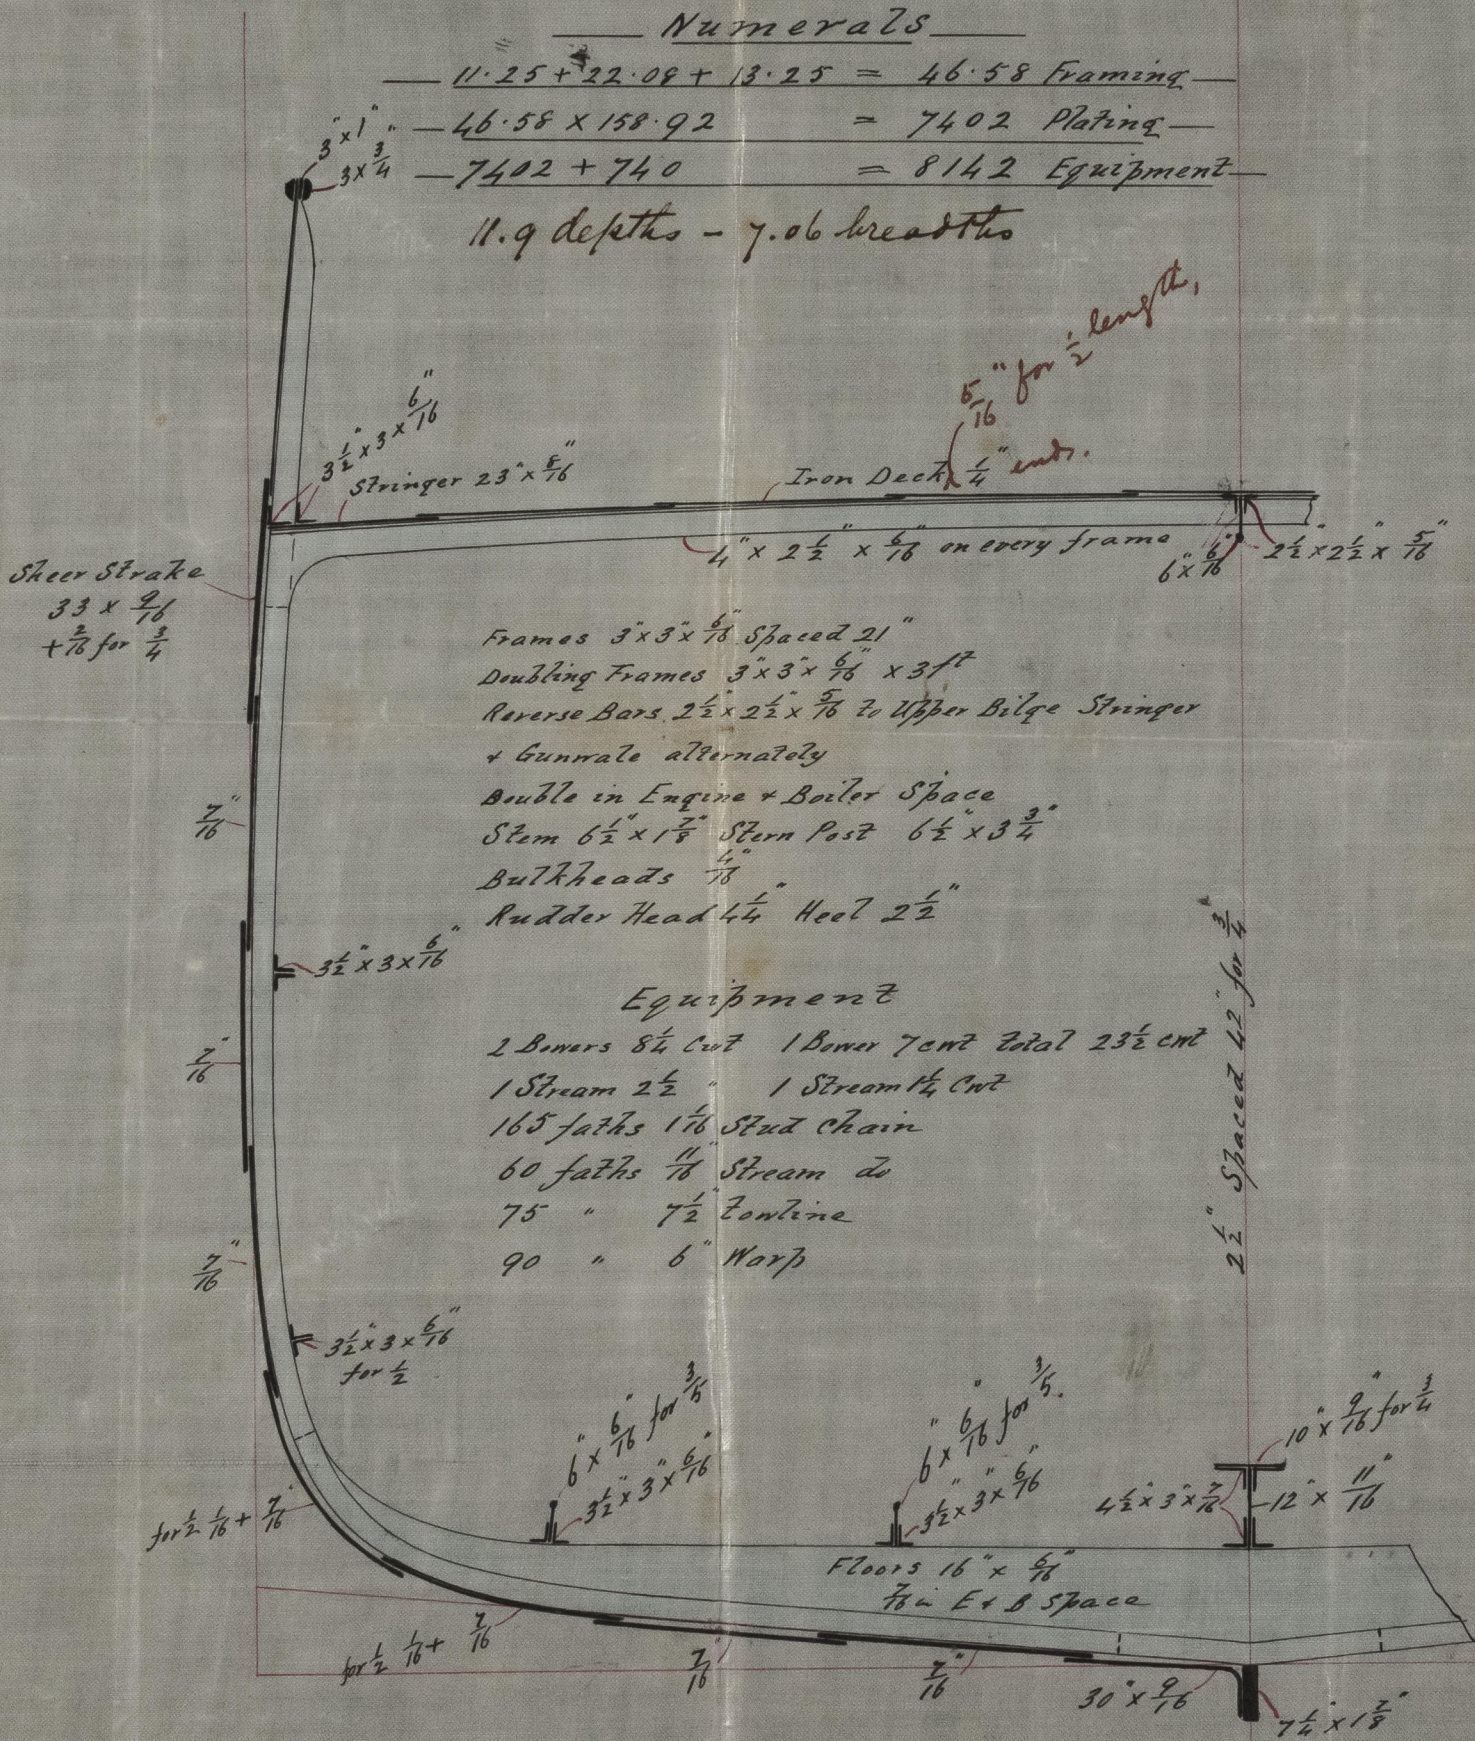 Numerals
11·25 + 22·08 + 13·25 = 46·58 Framing
46·58 × 158·92 = 7402 Plating
7402 + 740 = 8142 Equipment
11.9 depths – 7.06 breadths
3" × 1"
3 × 3/4
5/16" for 1/2 length,
1/4" ends.
3 1/2" × 3 × 6/16"
Stringer 23" × 8/16"
Iron Deck
4" × 2 1/2" × 6/16" on every frame
6" × 6/16"
2 1/2" × 2 1/2" × 5/16"
Sheer Strake
33 × 9/16
+ 2/16 for 3/4
Frames 3" × 3" × 6/16" Spaced 21"
Doubling Frames 3" × 3" × 6/16" × 3 ft
Reverse Bars 2 1/2" × 2 1/2" × 5/16 to Upper Bilge Stringer
+ Gunwale alternately
Double in Engine + Boiler Space
Stem 6 1/2" × 1 7/8" Stern Post 6 1/2" × 3 3/4"
Bulkheads 4/16"
Rudder Head 4 1/4" Heel 2 1/2"
7/16"
3 1/2" × 3 × 6/16"
7/16"
Equipment
2 Bowers 8 1/4 Cwt 1 Bower 7 cwt total 23 1/2 cwt
1 Stream 2 1/2 " 1 Stream 1 1/4 Cwt
165 faths 1 1/16" Stud Chain
60 faths 11/16" Stream do
75 " 7 1/2" Towline
90 " 6" Warp
2 1/2" Spaced 42" for 3/4
7/16"
3 1/2" × 3 × 6/16"
for 1/2
6" × 6/16" for 3/5
3 1/2" × 3" × 6/16"
6" × 6/16" for 3/5.
3 1/2" × 3" × 6/16"
10" × 9/16" for 3/4
4 1/2" × 3" × 7/16"
12" × 11/16"
for 1/2 1/16 + 7/16"
Floors 16" × 6/16"
7/16 in E + B Space
for 1/2 1/16 + 7/16
7/16"
7/16"
30" × 9/16
7 1/4" × 1 7/8"